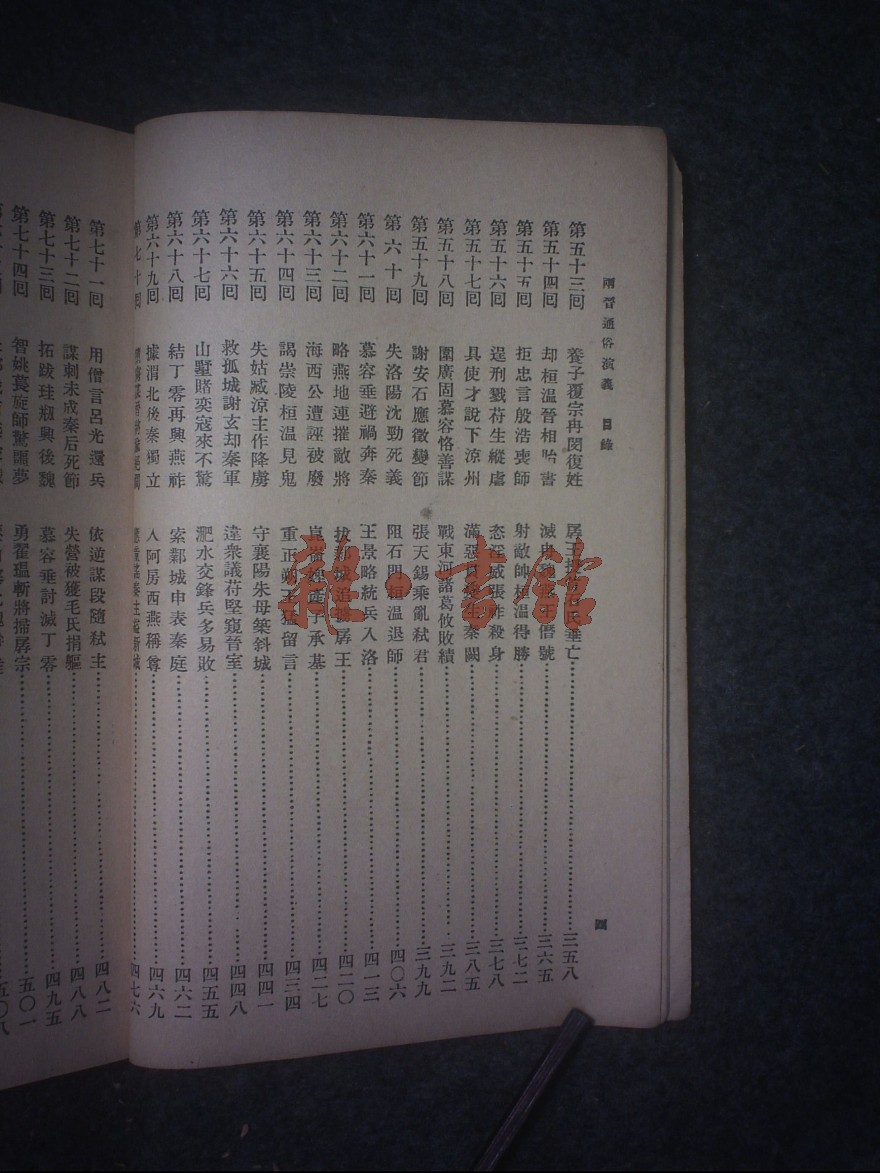 兩晉通俗演義 目錄
四
第五十三回 養子覆宗冉閔復姓 孱王 氏垂亡 三五八
第五十四回 却桓溫晉相貽書 滅冉魏燕王僭號 三六五
第五十五回 拒忠言殷浩喪師 射敵帥桓溫得勝 三七二
第五十六回 逞刑戮苻生縱虐 恣淫威張祚殺身 三七八
第五十七回 具使才說下涼州 滿惡貫 生秦闕 三八五
第五十八回 圍廣固慕容恪善謀 戰東河諸葛攸敗績 三九二
第五十九回 謝安石應徵變節 張天錫乘亂弒君 三九九
第六十回 失洛陽沈勁死義 阻石門桓溫退師 四〇六
第六十一回 慕容垂避禍奔秦 王景略統兵入洛 四一三
第六十二回 略燕地連摧敵將 拔鄴城追擄孱王 四二〇
第六十三回 海西公遭誣被廢 崑崙婢產子承基 四二七
第六十四回 謁崇陵桓溫見鬼 重正朔王猛留言 四三四
第六十五回 失姑臧涼主作降虜 守襄陽朱母築斜城 四四一
第六十六回 救孤城謝玄却秦軍 違衆議苻堅窺晉室 四四八
第六十七回 山墅賭奕寇來不驚 淝水交鋒兵多易敗 四五五
第六十八回 結丁零再興燕祚 索鄴城申表秦庭 四六二
第六十九回 據渭北後秦獨立 入阿房西燕稱尊 四六九
第七十回 四七六
第七十一回 用僧言呂光還兵 依逆謀段隨弒主 四八二
第七十二回 謀刺未成秦后死節 失營被獲毛氏捐軀 四八八
第七十三回 拓跋珪剏興後魏 慕容垂討滅丁零 四九五
第七十四回 智姚萇旋師驚噩夢 勇翟瑥斬將掃孱宗 五〇一
五〇八
雜·書館